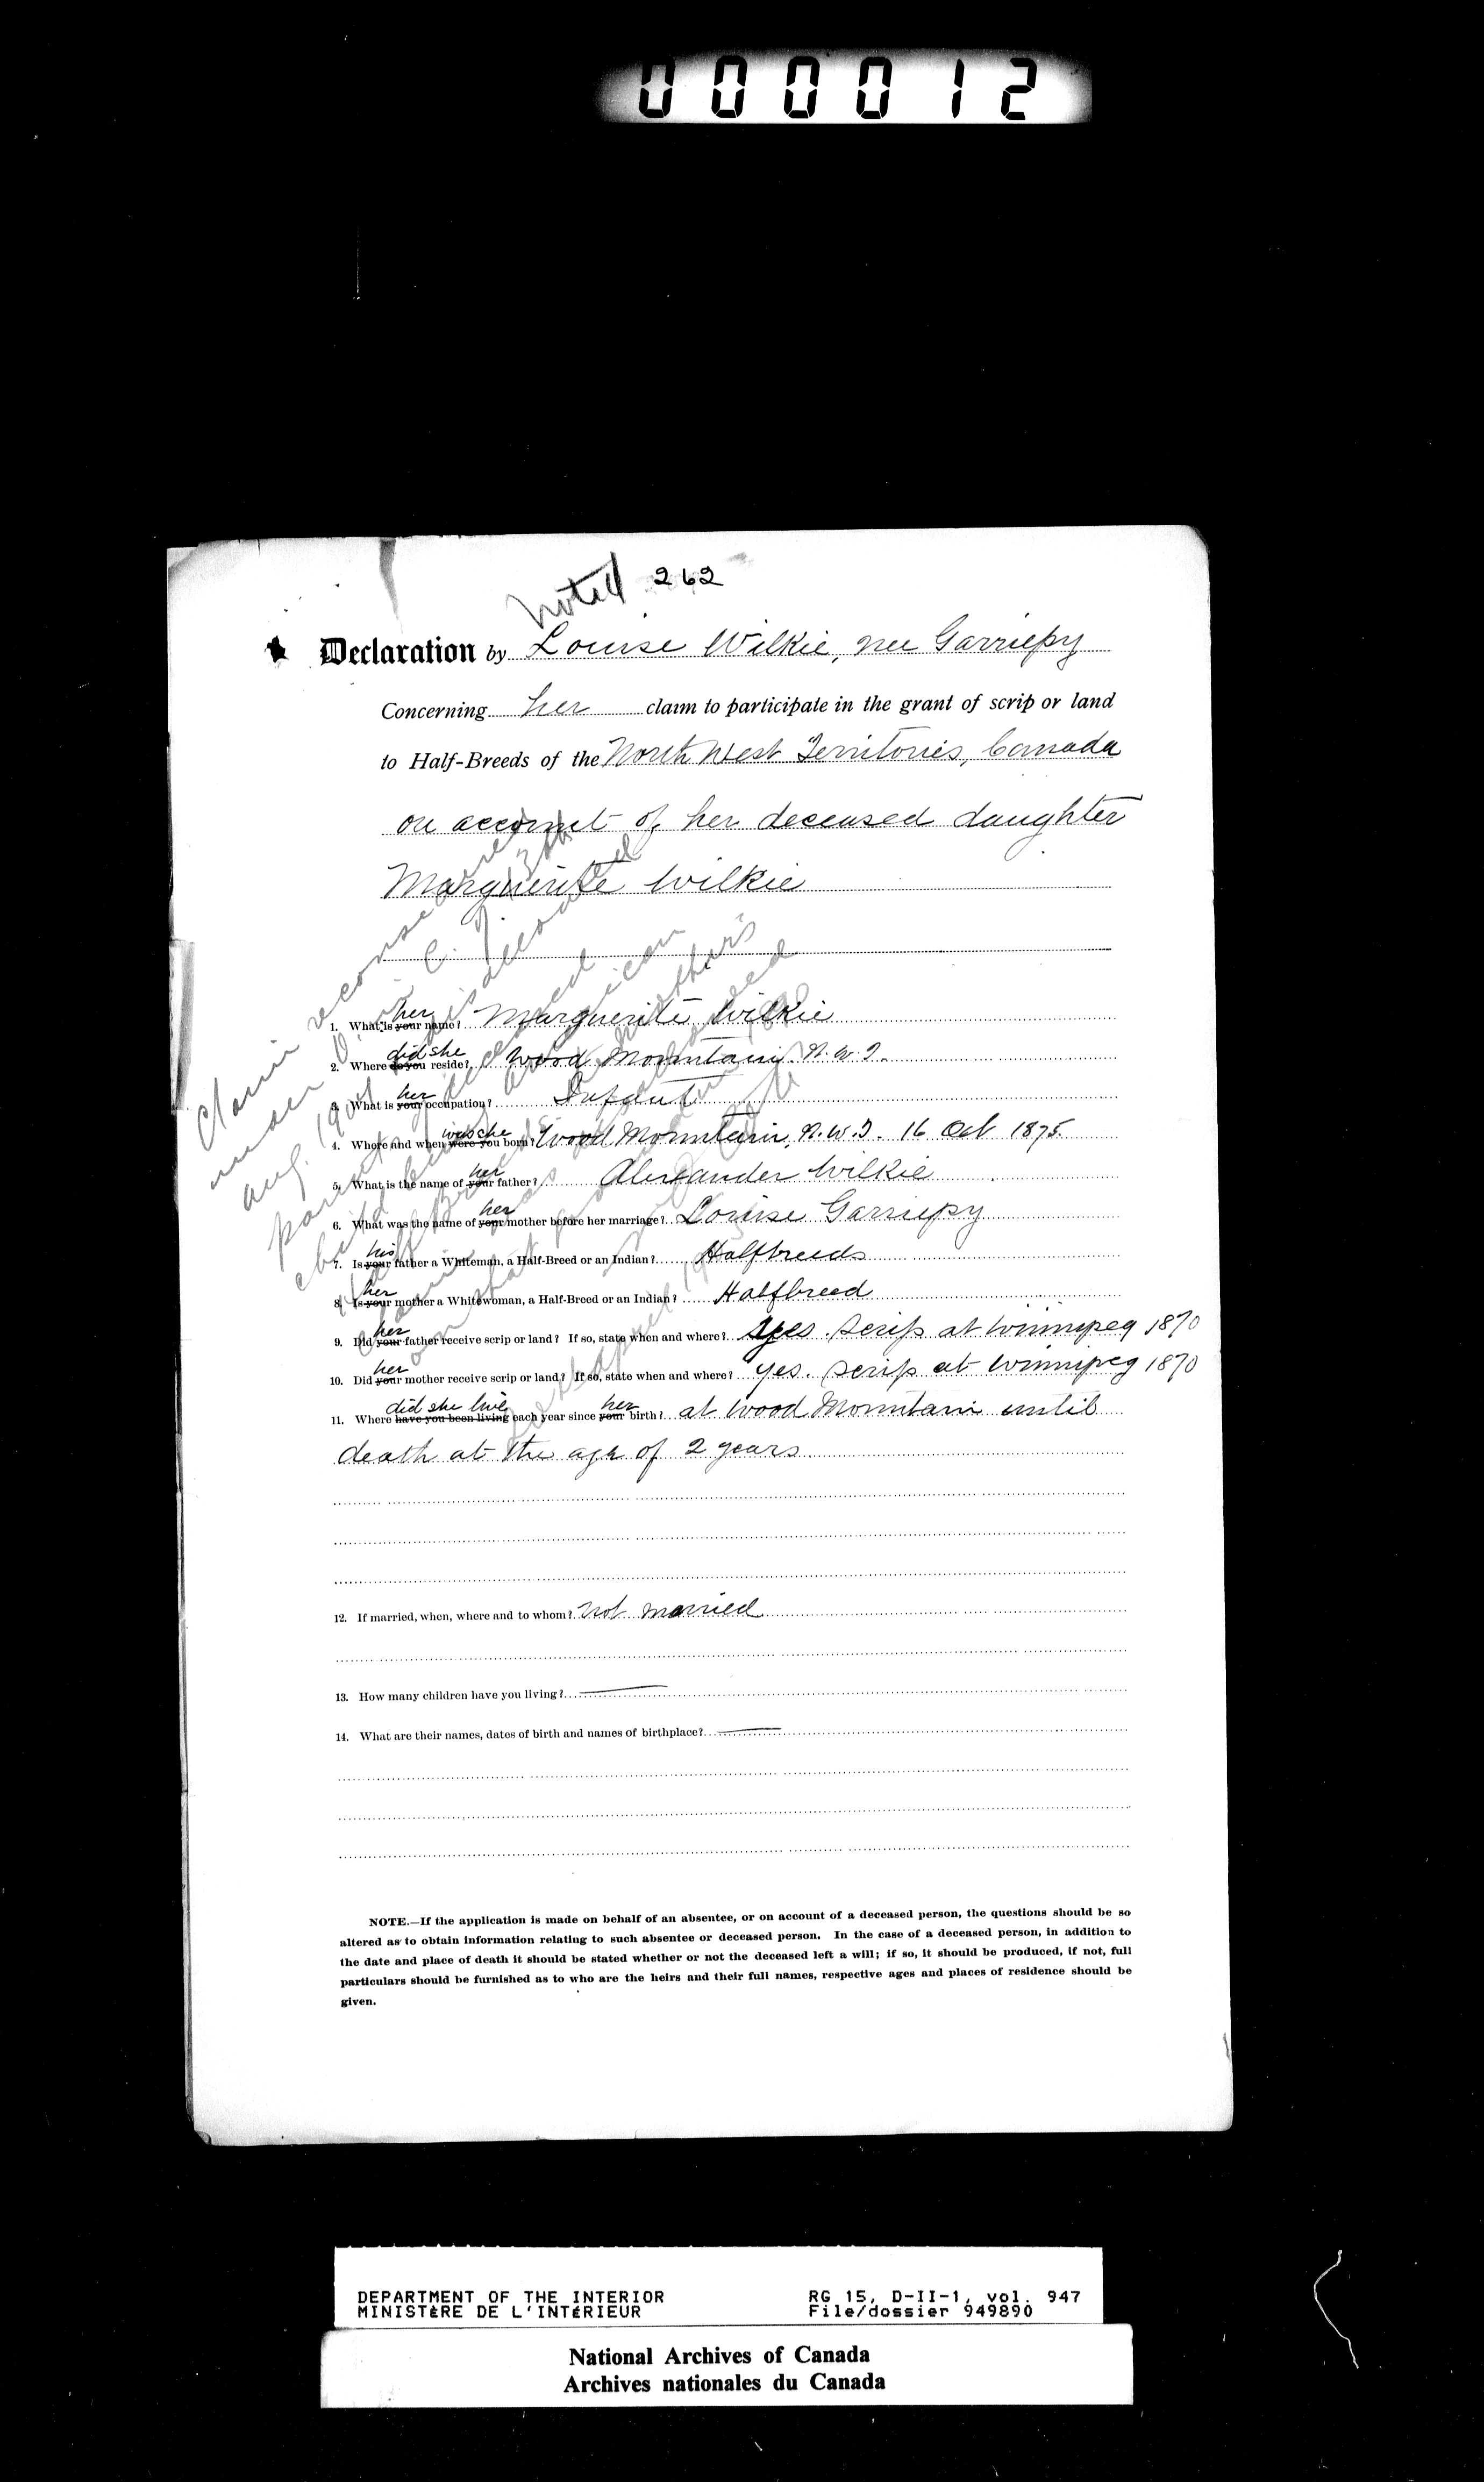 000012
Noted 262
Declaration by Louise Wilkie, nee Garriepy
Concerning her claim to participate in the grant of scrip or land
to Half-Breeds of the North West Territories, Canada
on account of her deceased daughter
Marguerite Wilkie
Claim reconsidered
under O. in C. of 13th
Aug. 1904 disallowed
parents of deceased
child being American
Half Breeds
1. What is your her name? Marguerite Wilkie
2. Where do you did she reside? Wood Mountain N.W.T.
3. What is your her occupation? Infant
4. Where and when were you was she born? Wood Mountain, N.W.T. 16 Oct 1875
5. What is the name of your her father? Alexander Wilkie
6. What was the name of your her mother before her marriage? Louise Garriepy
7. Is your his father a Whiteman, a Half-Breed or an Indian? Halfbreeds
8. Is your her mother a Whitewoman, a Half-Breed or an Indian? Halfbreed
9. Did your her father receive scrip or land? If so, state when and where? Yes. Scrip at Winnipeg 1870
10. Did your her mother receive scrip or land? If so, state when and where? Yes. Scrip at Winnipeg 1870
11. Where have you been living did she live each year since your her birth? at Wood Mountain until
death at the age of 2 years
12. If married, when, where and to whom? Not married
13. How many children have you living?
14. What are their names, dates of birth and names of birthplace?
NOTE.—If the application is made on behalf of an absentee, or on account of a deceased person, the questions should be so
altered as to obtain information relating to such absentee or deceased person. In the case of a deceased person, in addition to
the date and place of death it should be stated whether or not the deceased left a will; if so, it should be produced, if not, full
particulars should be furnished as to who are the heirs and their full names, respective ages and places of residence should be
given.
DEPARTMENT OF THE INTERIOR RG 15, D-II-1, vol. 947
MINISTÈRE DE L'INTÉRIEUR File/dossier 949890
National Archives of Canada
Archives nationales du Canada